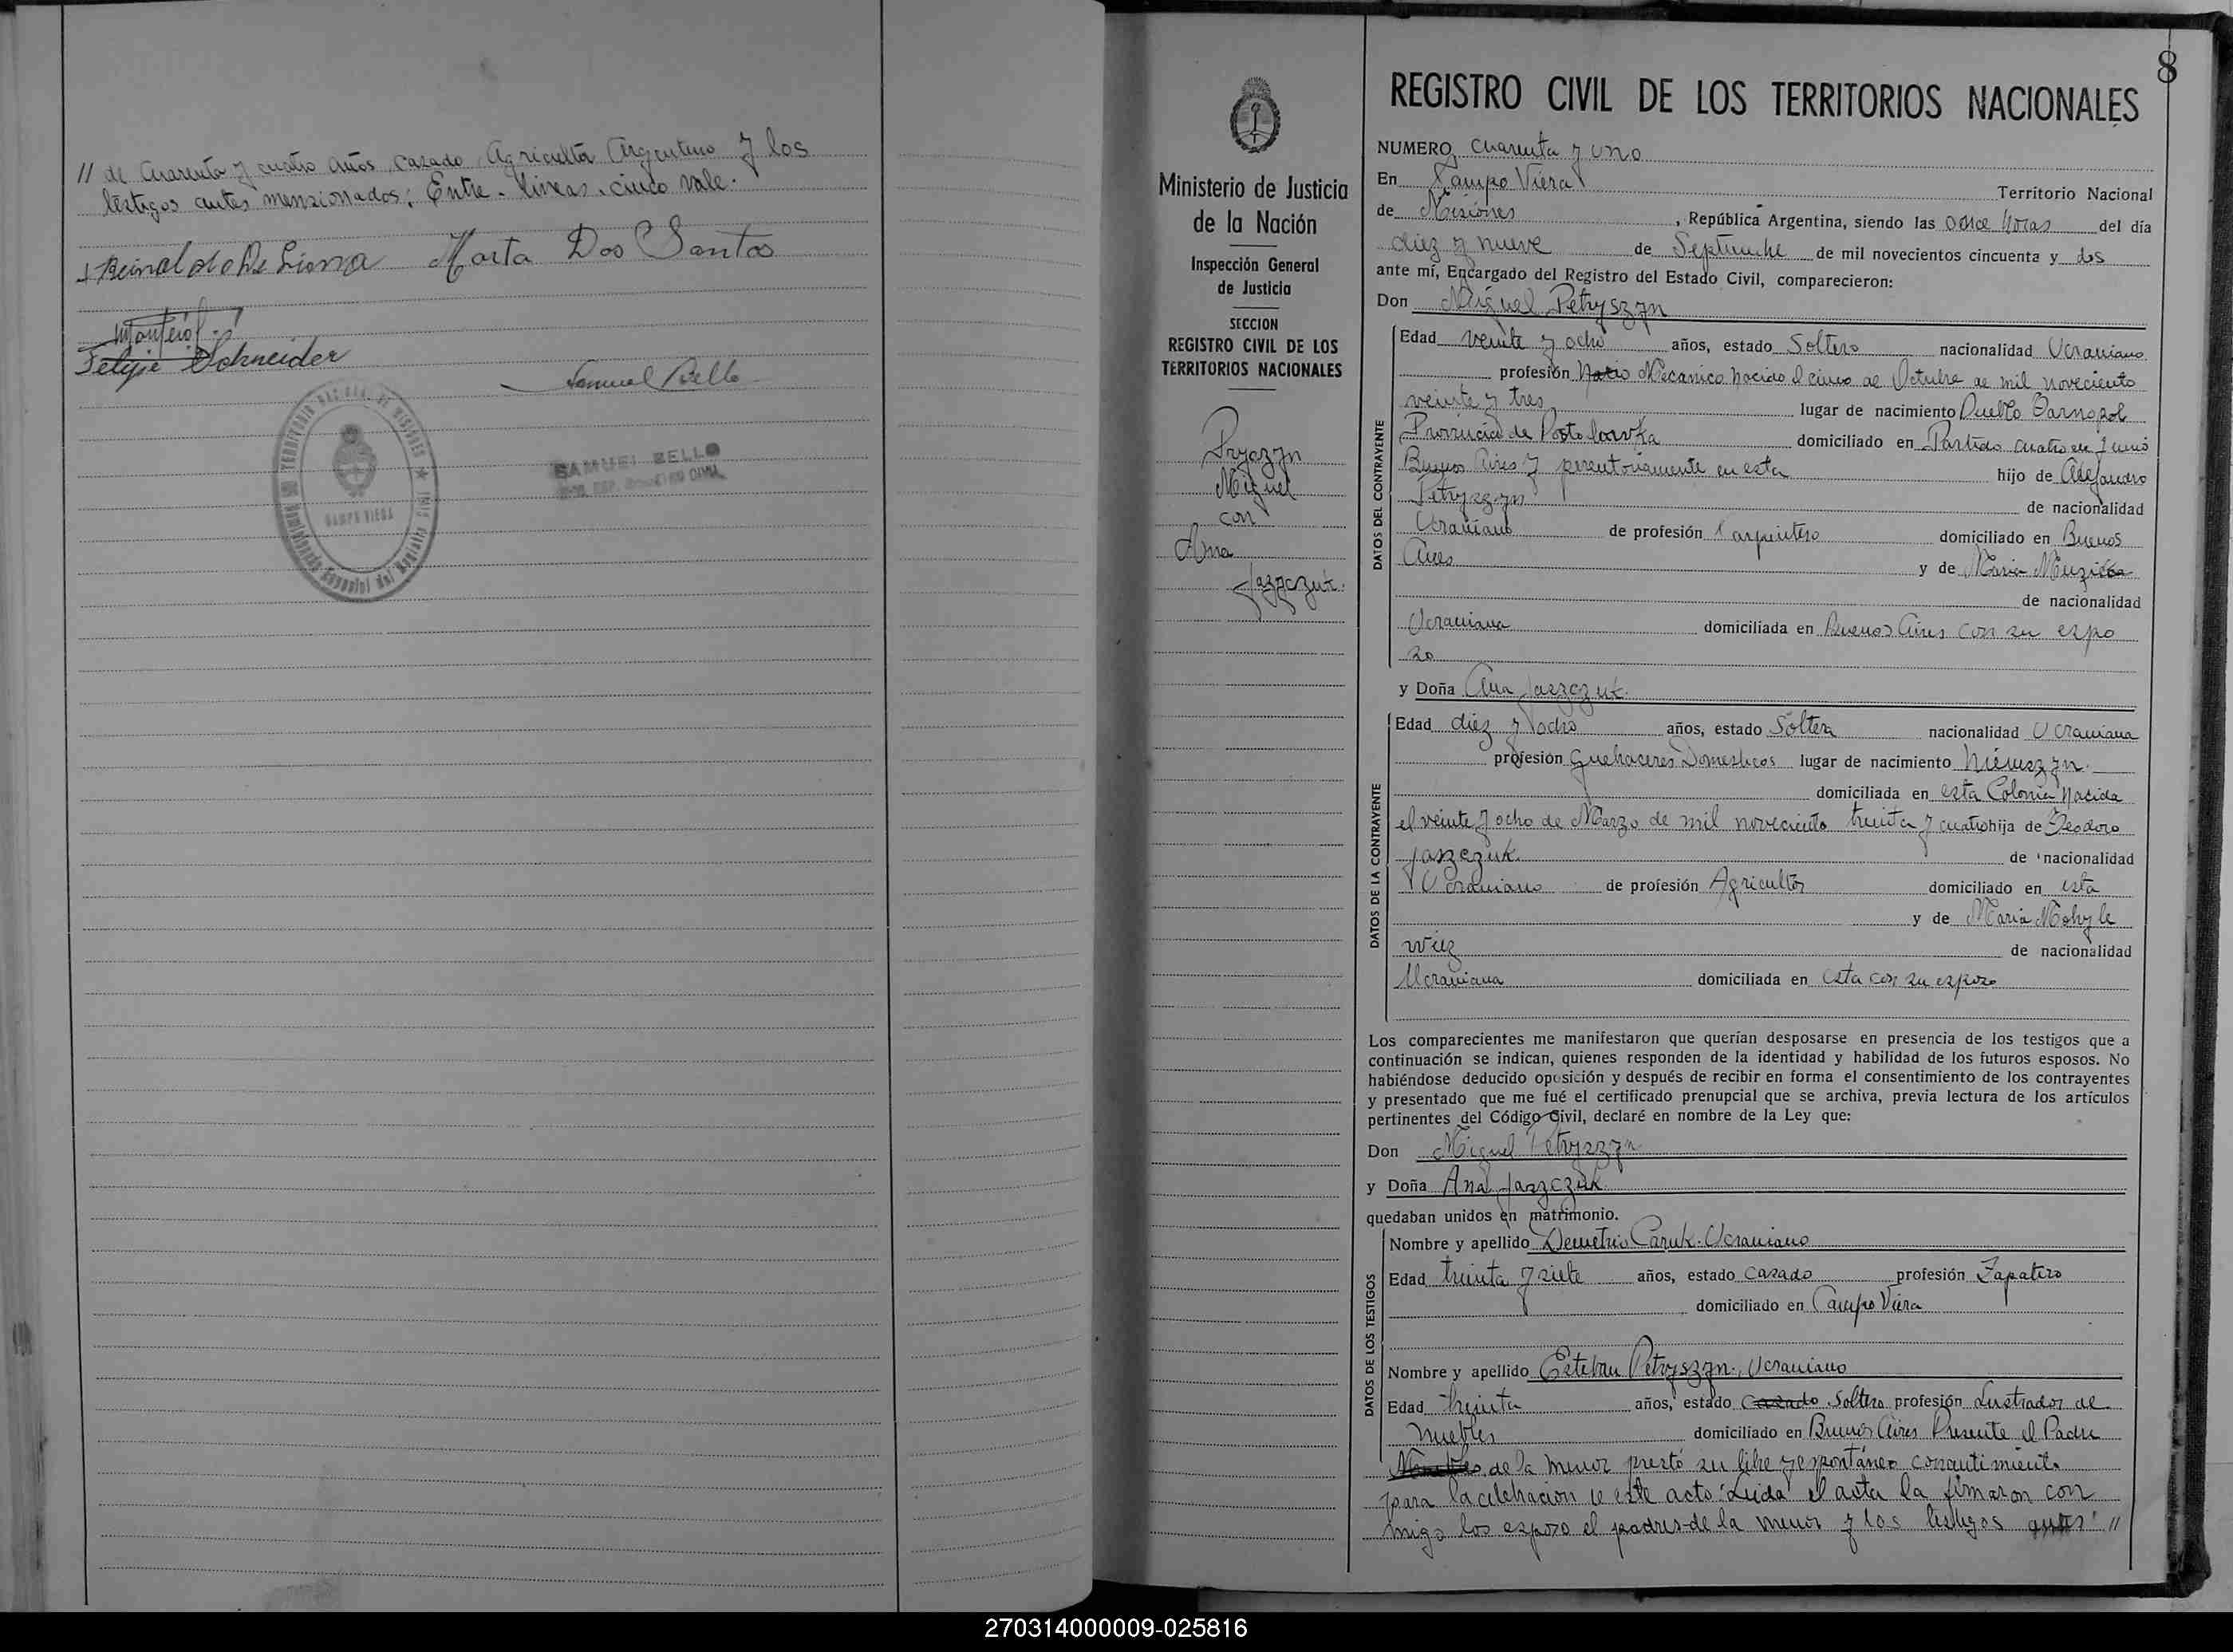 // de Cuarenta y cuatro años, casado, Agricultor Argentino y los
testigos antes menzionados; Entre-lineas-cinco vale.
Reinaldo De Lima Marta Dos Santos
Felipe Schneider
Samuel Bello
TERRITORIO NACIONAL DE MISIONES
CAMPO VIERA
SAMUEL BELLO
8
REGISTRO CIVIL DE LOS TERRITORIOS NACIONALES
Ministerio de Justicia
de la Nación
Inspección General
de Justicia
SECCION
REGISTRO CIVIL DE LOS
TERRITORIOS NACIONALES
Pryszyn
Miguel
con
Ana
Jaszczuk.
NUMERO cuarenta y uno
En Campo Viera Territorio Nacional
de Misiones, República Argentina, siendo las once horas del día
diez y nueve de Septiembre de mil novecientos cincuenta y dos
ante mí, Encargado del Registro del Estado Civil, comparecieron:
Don Miguel Petryszyn
DATOS DEL CONTRAYENTE
Edad veinte y ocho años, estado Soltero nacionalidad Ucraniano
profesión Mecanico nacido el cinco de Octubre de mil noveciento
veinte y tres lugar de nacimiento Pueblo Tarnopol
Provincia de domiciliado en Partido cuatro en Junio
Buenos Aires y en esta hijo de Alejandro
Petryszyn de nacionalidad
Ucraniano de profesión Carpintero domiciliado en Buenos
Aires y de Maria
de nacionalidad
Ucraniana domiciliada en Buenos Aires con su espo
zo
y Doña Ana Jaszczuk.
DATOS DE LA CONTRAYENTE
Edad diez y ocho años, estado Soltera nacionalidad Ucraniana
profesión Quehaceres Domesticos lugar de nacimiento
domiciliada en esta Colonia Nacida
el veinte y ocho de Marzo de mil noveciento treinta y cuatro hija de Teodoro
Jaszczuk. de nacionalidad
Ucraniano de profesión Agricultor domiciliado en esta
y de Maria Mohyle
wiez de nacionalidad
Ucraniana domiciliada en esta con su espozo
Los comparecientes me manifestaron que querían desposarse en presencia de los testigos que a
continuación se indican, quienes responden de la identidad y habilidad de los futuros esposos. No
habiéndose deducido oposición y después de recibir en forma el consentimiento de los contrayentes
y presentado que me fué el certificado prenupcial que se archiva, previa lectura de los artículos
pertinentes del Código Civil, declaré en nombre de la Ley que:
Don Miguel Petryszyn
y Doña Ana Jaszczuk
quedaban unidos en matrimonio.
DATOS DE LOS TESTIGOS
Nombre y apellido Demetrio Caruk. Ucraniano
Edad treinta y siete años, estado cazado profesión Zapatero
domiciliado en Campo Viera
Nombre y apellido Esteban Petryszyn, Ucraniano
Edad treinta años, estado cazado Soltero profesión Lustrador de
muebles domiciliado en Buenos Aires Presente el Padre
de la menor prestó su libre y espontáneo consentimiento
para la celebracion de este acto: Leida el acta la firmaron con
migo los espozo el padres de la menor y los testigos antes //
270314000009-025816